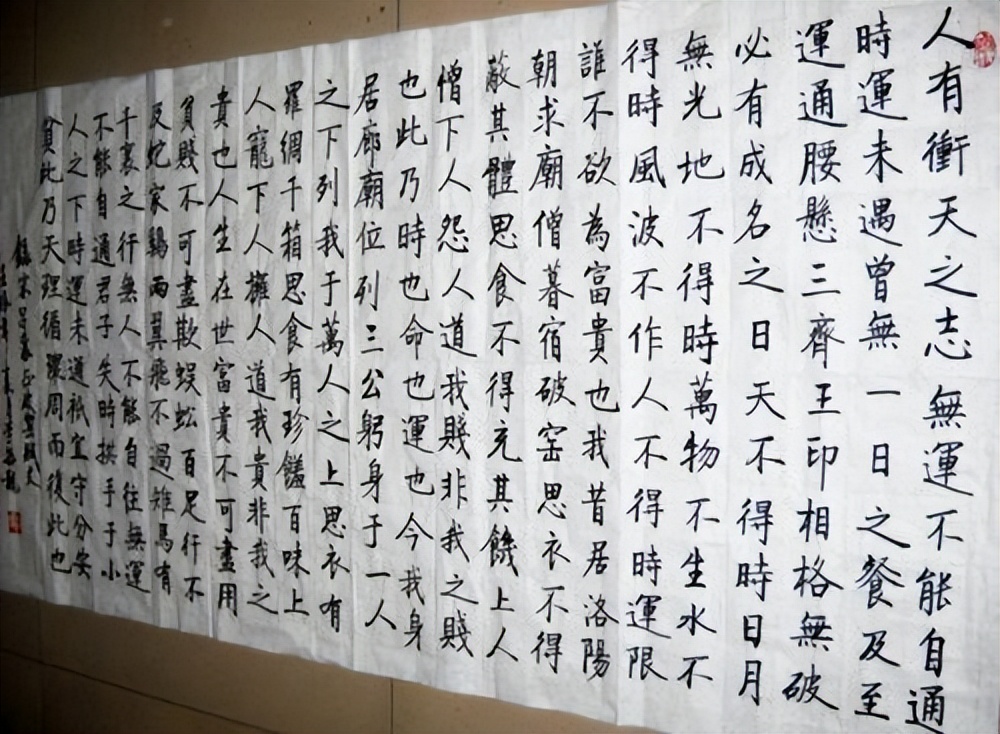 人有衝天之志無運不能自通
時運未遇曾無一日之餐及至
運通腰懸三齊王印相格無破
必有成名之日天不得時日月
無光地不得時萬物不生水不
得時風波不作人不得時運限
誰不欲為富貴也我昔居洛陽
朝求廟僧暮宿破窑思衣不得
蔽其體思食不得充其饑上人
憎下人怨人道我賤非我之賤
也此乃時也命也運也今我身
居廊廟位列三公躬身于一人
之下列我于萬人之上思衣有
羅綢千箱思食有珍饈百味上
人寵下人擁人道我貴非我之
貴也人生在世富貴不可盡用
貧賤不可盡欺蜈蚣百足行不
及蛇家鷄兩翼飛不過雉馬有
千裏之行無人不能自往無運
不能自通君子失時拱手于小
人之下時運未通衹宜守分安
貧此乃天理循環周而復此也
錄宋呂蒙正